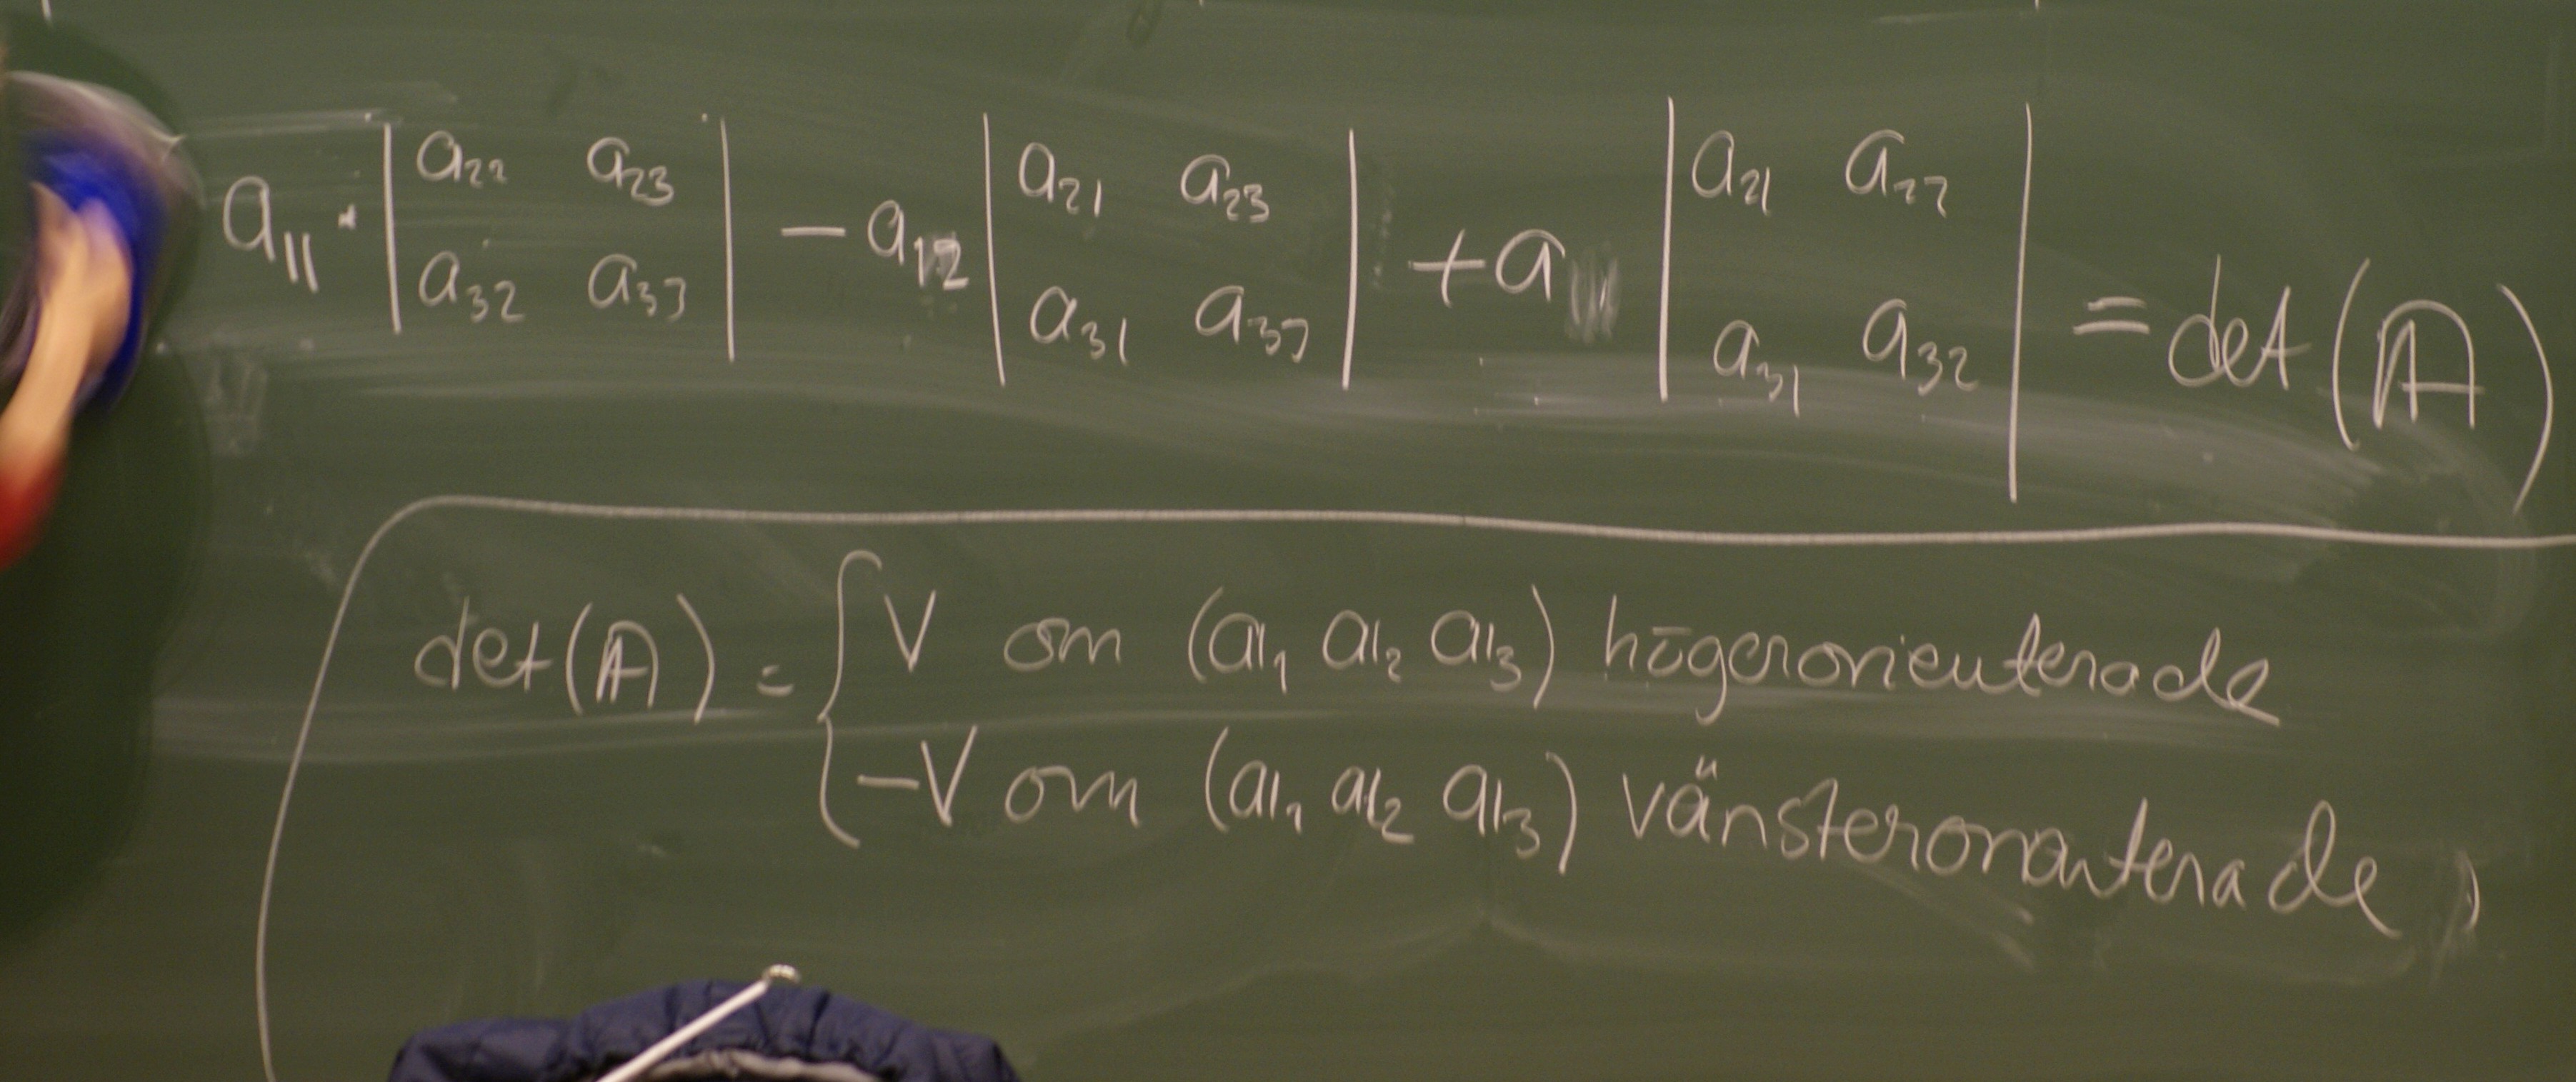 a₁₁ · | a₂₂ a₂₃ | − a₁₂ | a₂₁ a₂₃ | + a | a₂₁ a₂₂ | = det(A)
| a₃₂ a₃₃ | | a₃₁ a₃₃ | | a₃₁ a₃₂ |
det(A) = { V om (a₁ a₂ a₃) högerorienterade
−V om (a₁ a₂ a₃) vänsterorienterade